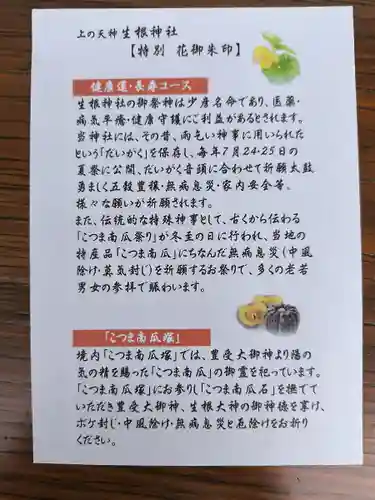 上の天神 生根神社
【特別 花御朱印】
健康運・長寿コース
生根神社の御祭神は少彦名命であり、医薬・
病気平癒・健康守護にご利益があるとされます。
当神社には、その昔、雨乞い神事に用いられた
という「だいがく」を保存し、毎年7月24・25日の
夏祭に公開、だいがく音頭に合わせて祈願太鼓
勇ましく五穀豊穣・無病息災・家内安全等、
様々な願いが祈願されます。
また、伝統的な特殊神事として、古くから伝わる
「こつま南瓜祭り」が冬至の日に行われ、当地の
特産品「こつま南瓜」にちなんだ無病息災(中風
除け・蒸気封じ)を祈願するお祭で、多くの老若
男女の参拝で賑わいます。
「こつま南瓜塚」
境内「こつま南瓜塚」では、豊受大御神より陽の
気の精を賜った「こつま南瓜」の御霊を祀っています。
「こつま南瓜塚」にお参りし「こつま南瓜石」を撫でて
いただき豊受大御神、生根大神の御神徳を享け、
ボケ封じ・中風除け・無病息災と厄除けをお祈り
ください。